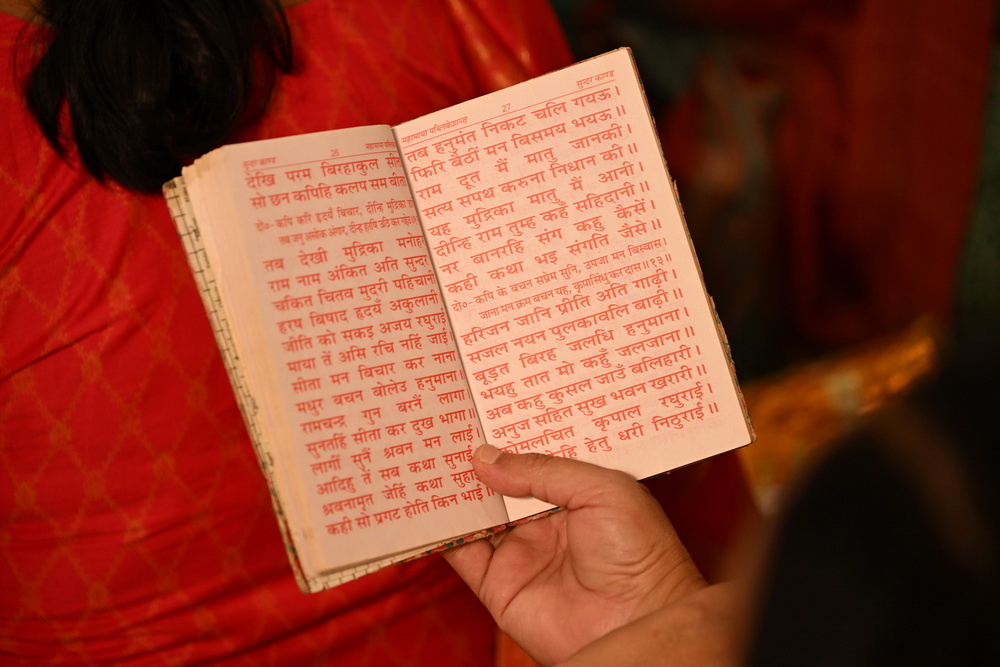 सुन्दर काण्ड 26
देखि परम बिरहाकुल
सो छन कपिहि कलप सम बीता
दो०- कपि करि हृदयँ बिचार, दीन्हि मुद्रिका
जनु असोक अंगार, दीन्ह हरषि उठि कर
तब देखी मुद्रिका मनोहर
राम नाम अंकित अति सुन्दर
चकित चितव मुदरी पहिचानी
हरष बिषाद हृदयँ अकुलानी
जीति को सकइ अजय रघुराई
माया तें असि रचि नहिं जाई
सीता मन बिचार कर नाना
मधुर बचन बोलेउ हनुमाना
रामचन्द्र गुन बरनैं लागा
सुनतहिं सीता कर दुख भागा॥
लागीं सुनैं श्रवन मन लाई
आदिहु तें सब कथा सुनाई
श्रवनामृत जेहिं कथा सुहाई
कही सो प्रगट होति किन भाई॥
महामाया पब्लिकेशन्स 27 सुन्दर काण्ड
तब हनुमंत निकट चलि गयऊ।
फिरि बैठीं मन बिसमय भयऊ॥
राम दूत मैं मातु जानकी।
सत्य सपथ करुना निधान की॥
यह मुद्रिका मातु मैं आनी।
दीन्हि राम तुम्ह कहँ सहिदानी॥
नर बानरहि संग कहु कैसें।
कही कथा भइ संगति जैसे॥
दो०- कपि के बचन सप्रेम सुनि, उपजा मन बिस्वास।
जाना मन क्रम बचन यह, कृपासिंधु कर दास॥१३॥
हरिजन जानि प्रीति अति गाढ़ी।
सजल नयन पुलकावलि बाढ़ी॥
बूड़त बिरह जलधि हनुमाना।
भयहु तात मो कहुँ जलजाना॥
अब कहु कुसल जाउँ बलिहारी।
अनुज सहित सुख भवन खरारी॥
कोमलचित कृपाल रघुराई।
हेतु धरी निठुराई॥